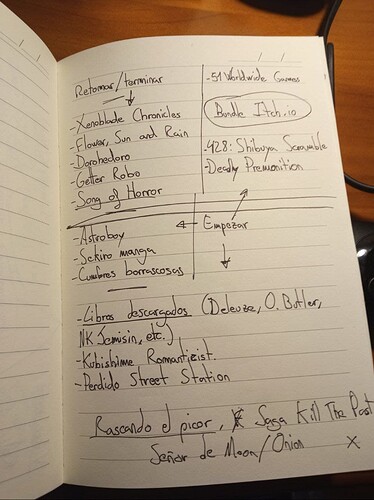 Retomar/terminar
-Xenoblade Chronicles
-Flower, Sun and Rain
-Dorohedoro
-Getter Robo
-Song of Horror
-51 Worldwide Games
Bundle Itch.io
-428: Shibuya Scramble
-Deadly Premonition
Empezar
-Astroboy
-Sekiro manga
-Cumbres borrascosas
-Libros descargados (Deleuze, O. Butler,
NK Jemisin, etc.)
-Kubishime Romanticist.
-Perdido Street Station
Rascando el picor, Saga Kill The Past
Señor de Moon/Onion X